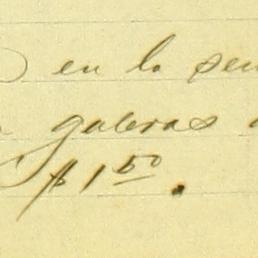 en la sem
galeras
$1.50.